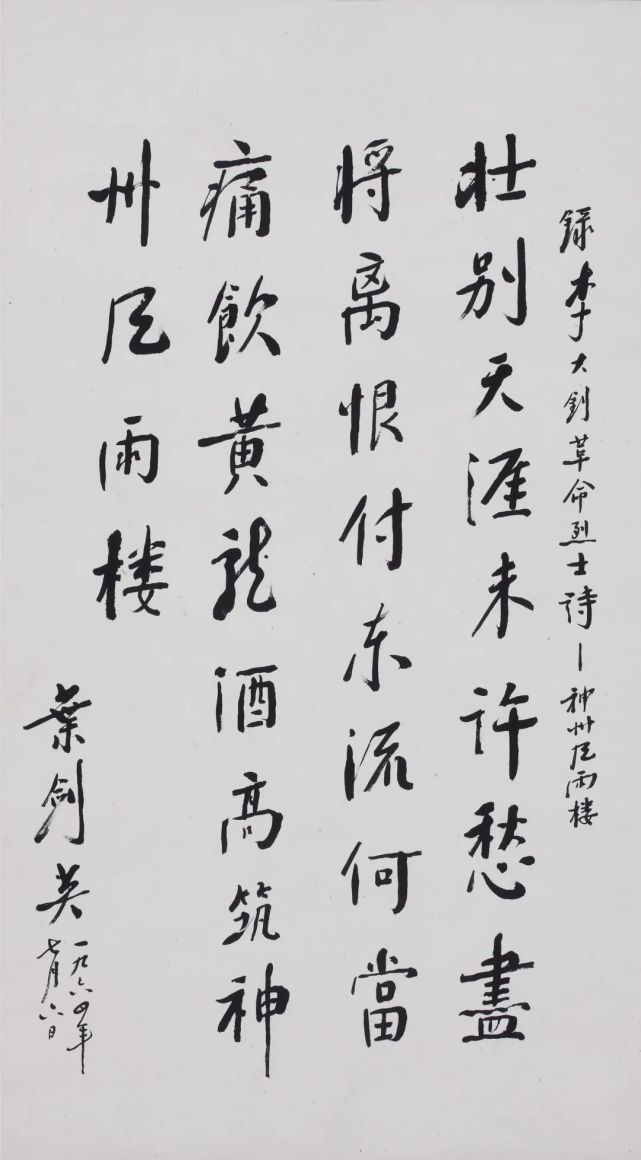 錄李大釗革命烈士詩—神州风雨楼
壮别天涯未许愁盡
将离恨付东流何當
痛飲黄龙酒高筑神
州风雨楼
葉劍英
一九六四年
七月六日